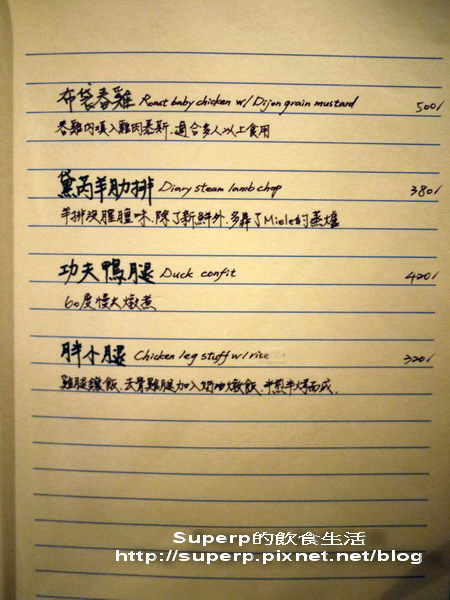 布袋春雞 Roast baby chicken w/ Dijon grain mustard 500/
春雞內填入雞肉慕斯.適合多人以上食用
黛芮羊肋排 Diary steam lamb chop 380/
羊排沒腥羶味.除了新鮮外.多虧了Miele的蒸爐
功夫鴨腿 Duck confit 420/
60度慢火燉煮
胖小腿 Chicken leg stuff w/ rice 320/
雞腿鑲飯.去骨雞腿加入奶油燉飯.半煎半烤而成.
Superp的飲食生活
http://superp.pixnet.net/blog